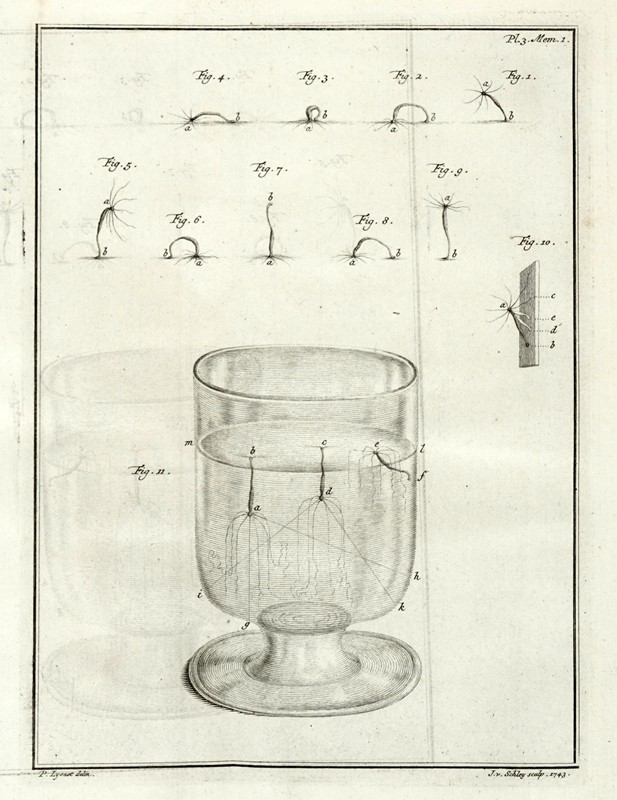 Pl. 3. Mem. 1.
Fig. 4. Fig. 3. Fig. 2. Fig. 1.
a b a b a b a b
Fig. 5 Fig. 7. Fig. 9.
a b
Fig. 6. b a
b a
Fig. 8. a b
a b
Fig. 10.
a c
e
d
b
m b c e l
Fig. 11. f
a d
i h
k
g
P. Lyonet delin. J. v. Schley sculp. 1743.